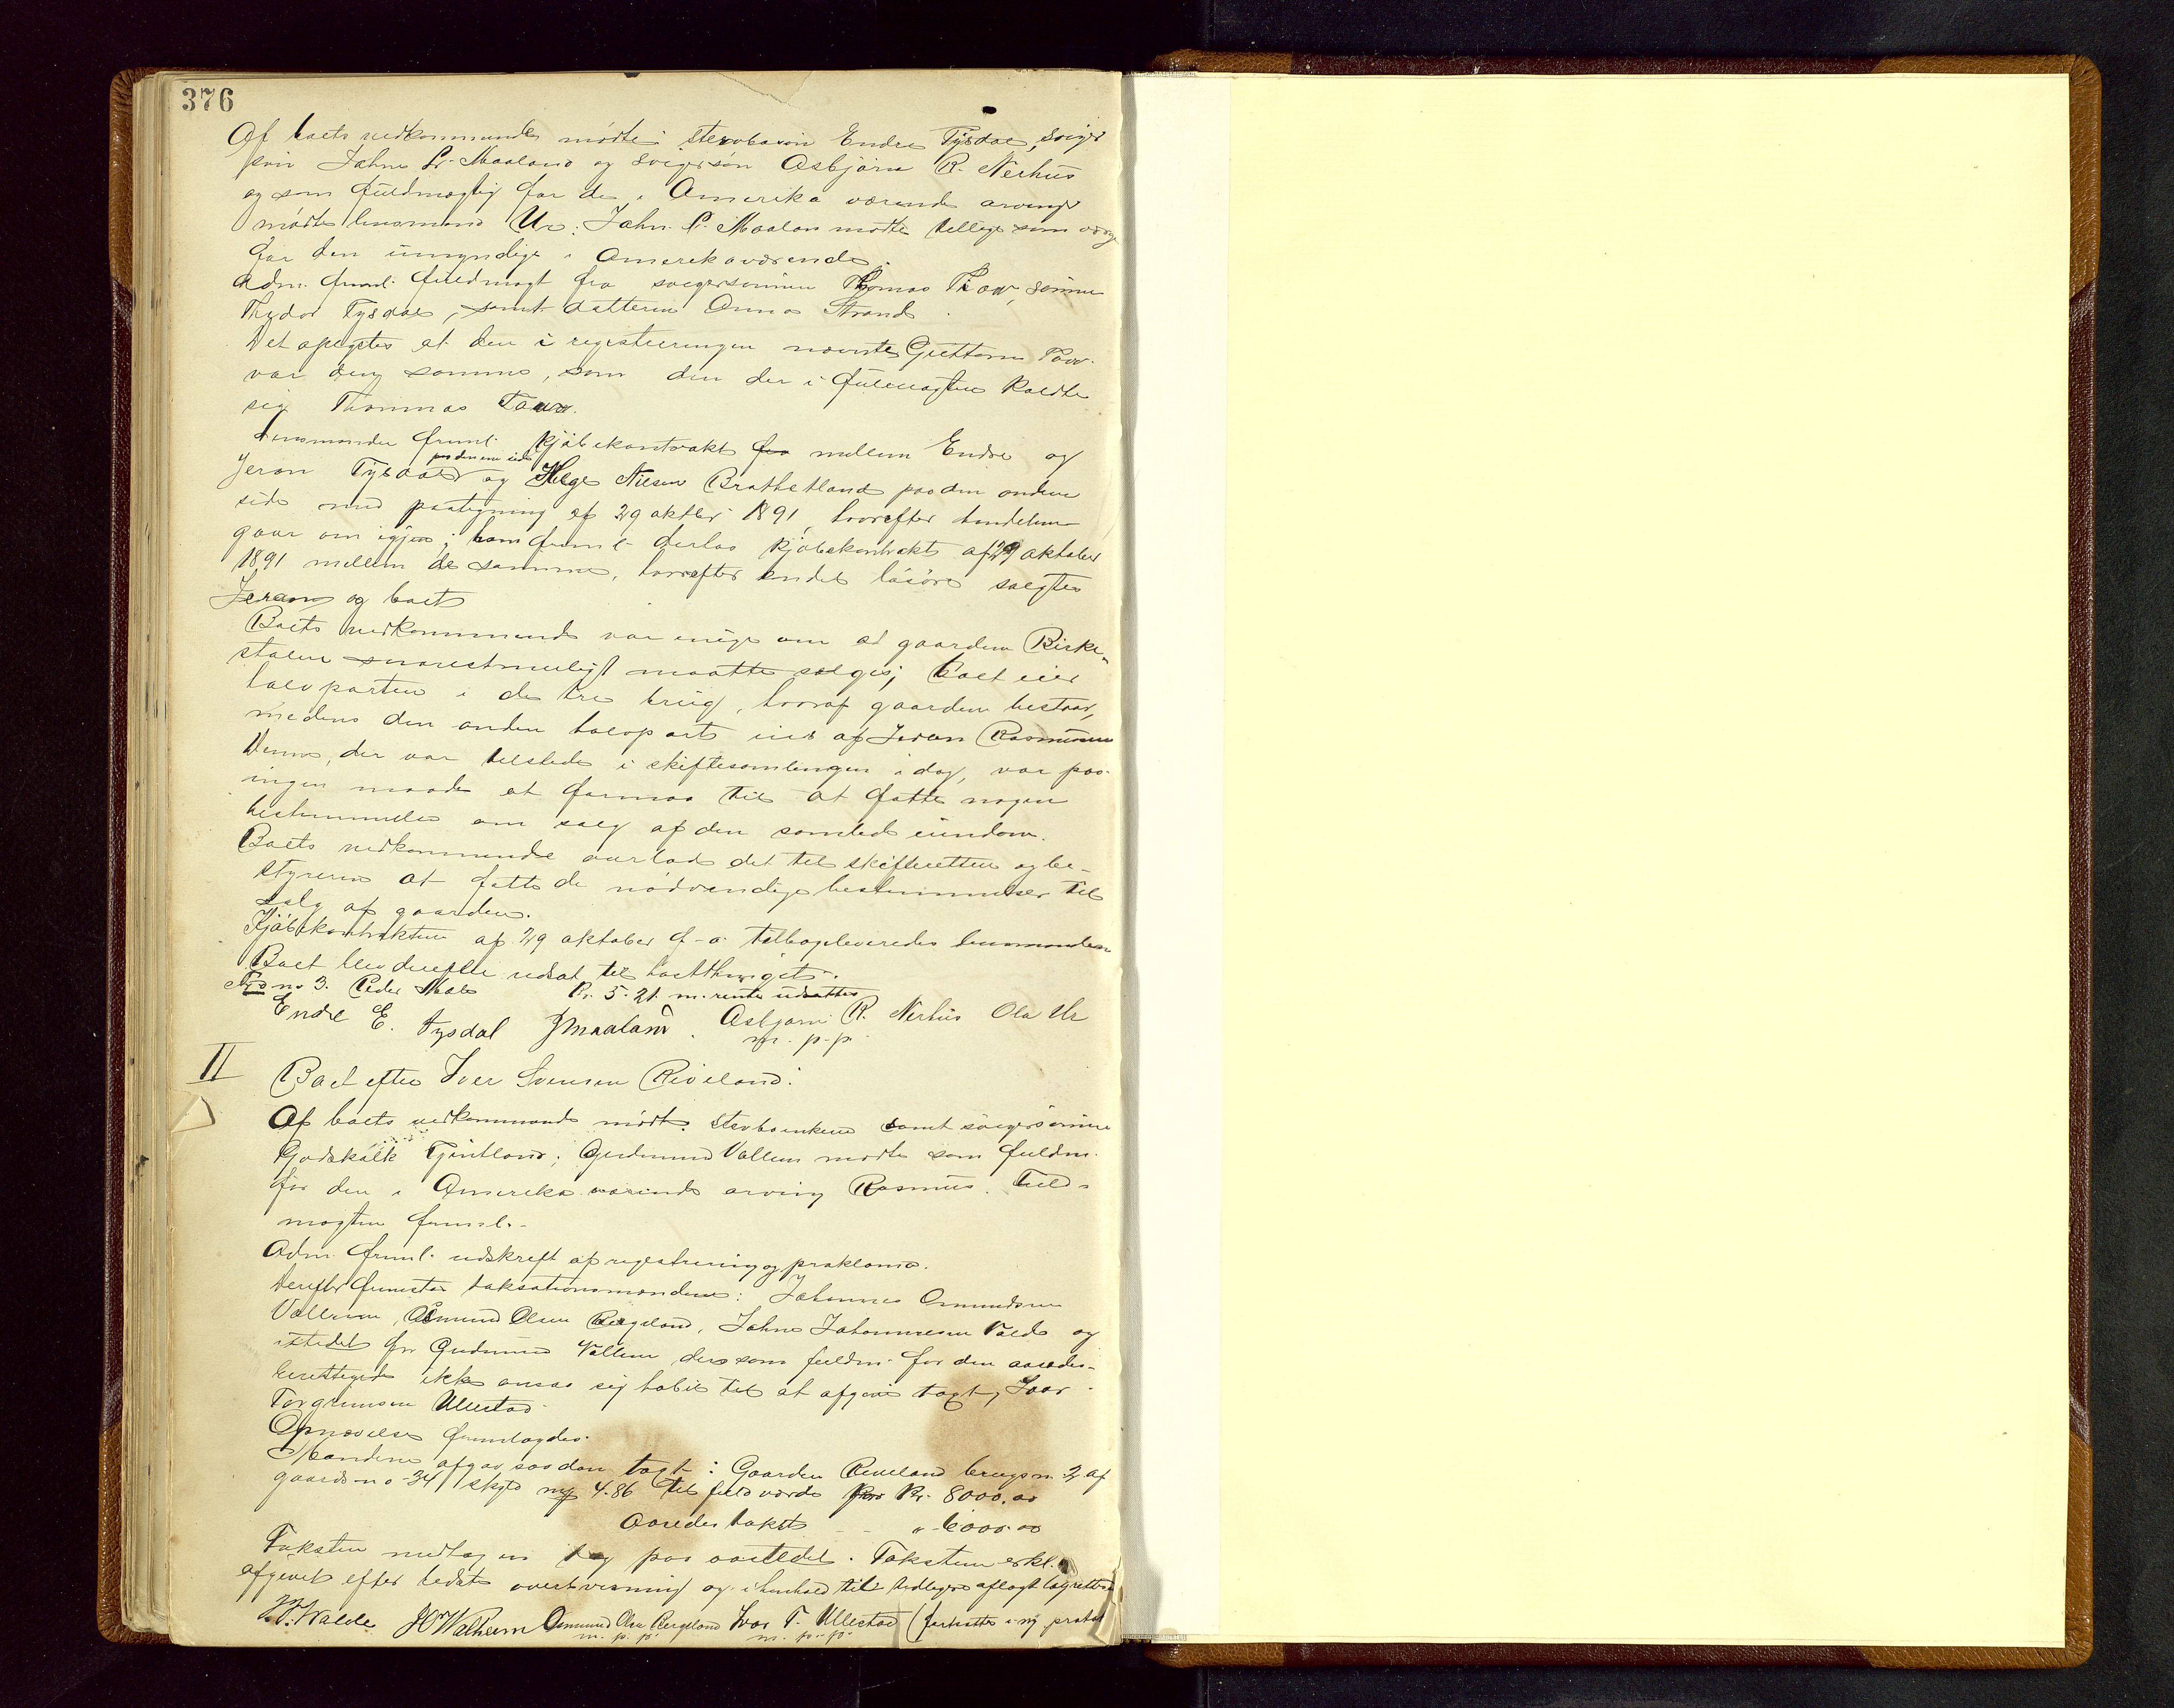 376
Af boets vedkommende mødte sterbøson Endre Tysdal, sviger
søn John P. Maaland og svigersøn Asbjørn R. Nerhus
og som fuldmægtig for de i Amerika værende arvinger
mødte lensmand Ur. John P. Maaland mødte tillige som værge
for den umyndige i Amerikaværende.
Adm. freml. fuldmagt fra svigersønnen Thomas Tow, sønnen
Thydor Tysdal, samt datteren Anna Strand.
Det oplystes at den i registreringen nævnte Guttorm Tow.
var den samme, som den der i fuldmagten kaldte
sig Thommas Tow.
Lensmanden freml. kjøbekontrakt fra mellem Endre og
Jeron Tysdal paa den ene side og Helge Nilsen Bratthetland paa den anden
side med paategning af 29 oktbr 1891, hvorefter handelen
gaar om igjen; ham freml. derhos kjøbekontrakt af 29 oktober
1891 mellem de samme, hvorefter endel løsøre solgtes
Jeron og boet
Boets vedkommende var enige om at gaarden Birke-
stølen snarestmuligt maatte sælges; Boet eier
halvparten i de tre brug, hvoraf gaarden bestaar,
medens den anden halvpart eies af Jeron Rasmussen
Denne, der var tilstede i skiftesamlingen idag, var paa
ingen maade at formaa til at fatte nogen
bestemmelse om salg af den samlede eiendom.
Boets vedkommende overlod det til skifteretten og be-
styreren at fatte de nødvendige bestemmelser til
salg af gaarden.
Kjøbekontrakten af 29 oktober f. a. tilbageleveredes lensmanden
Boet blev derefter udsat til hosthinget.
No 3. Peder Kr. 5.21 m. renter udsattes
Endre E. Tysdal JMaaland. Asbjørn R. Nerhus Ola Ur
m. p. p.
II
Boet efter Iver Svensen Riveland.
Af boets vedkommende mødte. Sterboenken samt svigersønnen
Godskalk Tjentland; Gudmund Vallem mødte som fuldm.
for den i Amerika værende arving Rasmus. Fuld-
magten freml.
Adm. freml. udskrift af registrering og proklama.
Derefter fremstod taksationsmændene: Johannes Omundsen
Vallem, Osmund Olsen Bergeland, John Johannesen Valde og
istedet for Gudmund Vallem der som fuldm. for den aasædes-
berettigede ikke ansaa sig habil til at afgive taxt, Ivar
Torgrimsen Ullestad
Opnævelse fremlagdes.
Mændene afgav saadan taxt: Gaarden Riveland brugsn. 2 af
gaards no 34 skyld ny 4.86 til fuld værdi Kr. 8000.00
Aasædes takst - - " 6000.00
Taksten nedlagdes paa aastedet. Taksten erkl.
afgivet efter bedste overbevisning og i henhold til tidligere aflagt lagretteed
J.J. Walde JOWalheim Osmund Olsen Bergeland Ivar T. Ullestad (fortsættes i ny protokol
m. p. p. m. p. p.